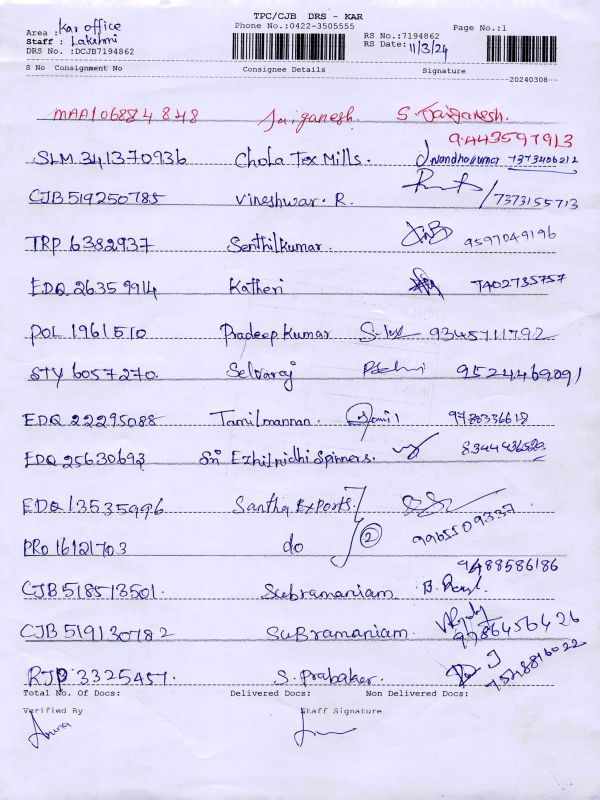 TPC/CJB DRS - KAR
Phone No.:0422-3505555
Page No.:1
Area : Kar office
Staff : Lakshmi
DRS No. :DCJB7194862
RS No:7194862
RS Date: 11/3/24
S No Consignment No Consignee Details Signature
20240308
MAA106884848 Jaiganesh S. Jaiganesh.
9443597913
SLM 341370936 Chola Tex Mills. 7373406212
CJB 519250785 Vineshwar. R. 7373155713
TRP 6382937 Senthilkumar. 9597049196
EDQ 26359914 Katheri 7402735757
POL 1961510 Pradeep Kumar 9345711792
STY 6057270. Selvaraj 9524469091
EDQ 22295088 Tamilmannan. 9788336618
EDQ 25630693 Sri Ezhilnidhi Spinners. 8344436520
EDQ 13535996 Santha Exports
PRO 16121703 do 2 9965509337
9488586186
CJB 518513501. Subramaniam.
CJB 519130782 Subramaniam. 9786456426
RJP 3325457. S. Prabaker.
Total No. Of Docs: Delivered Docs: Non Delivered Docs:
Verified By Staff Signature
Aruna